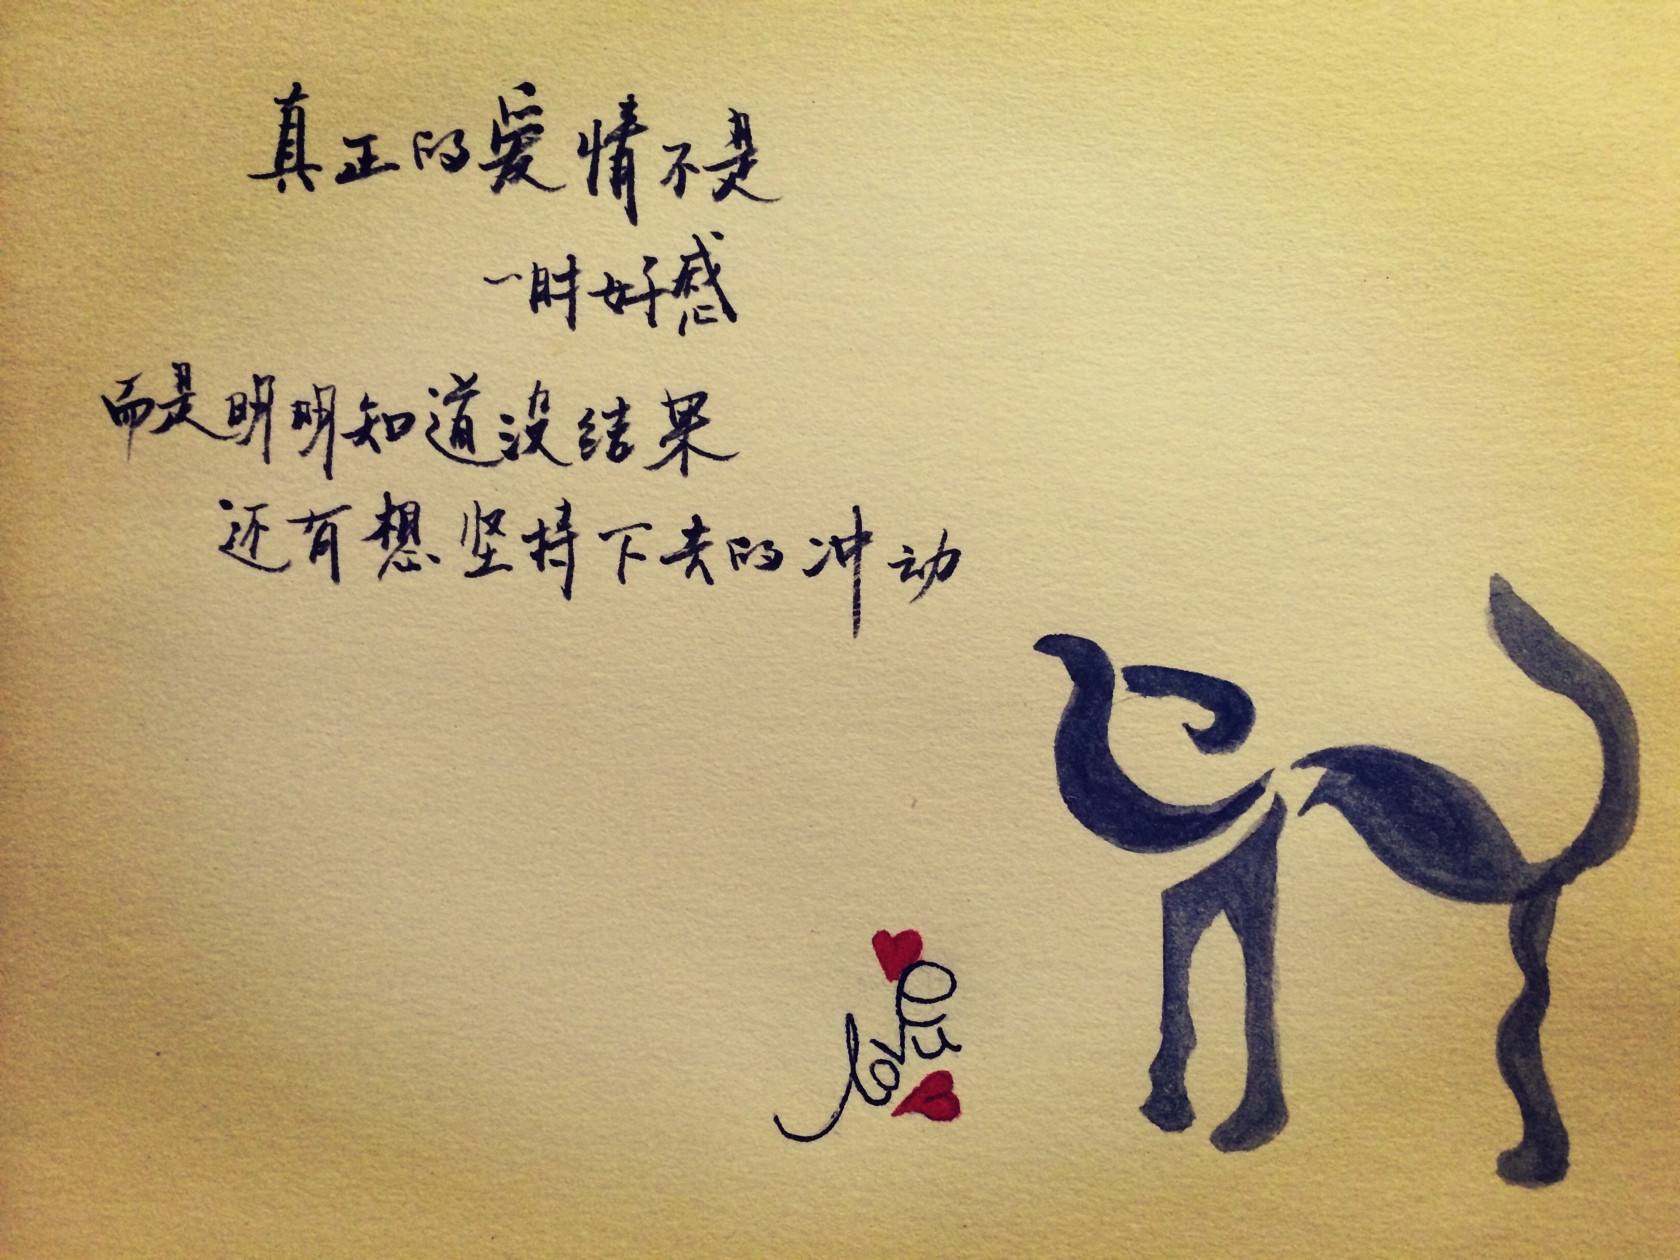 真正的爱情不是
一时好感
而是明明知道没结果
还有想坚持下去的冲动
love u